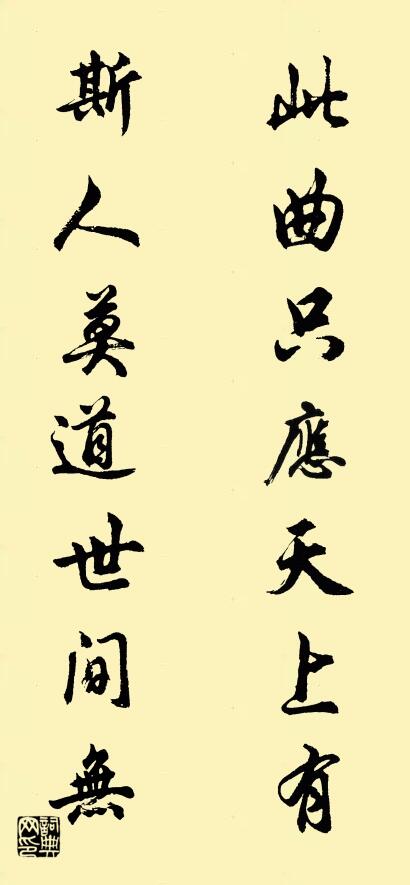 此曲只應天上有
斯人莫道世間無
詞典網印